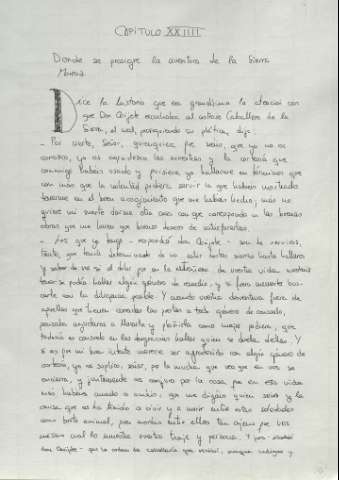 CAPÍTULO XXIIII
Donde se prosigue la aventura de la Sierra
Morena
Dice la historia que era grandísima la atención con
que Don Quijote escuchaba al astroso Caballero de la
Sierra, el cual, prosiguiendo su plática, dijo:
- Por cierto, Señor, quienquiera que seáis, que yo no os
conozco, yo os agradezco las muestras y la cortesía que
conmigo habéis usado y quisiera yo hallarme en términos que
con más que la voluntad pudiera servir la que habéis mostrado
tenerme en el buen acogimiento que me habéis hecho; más no
quiere mi suerte darme otra cosa con que corresponda a las buenas
obras que me hacen que buenos deseos de satisfacerlas.
- Los que yo tengo - respondió don Quijote - son de serviros,
tanto, que tenía determinado de no salir destas sierras hasta hallaros
y saber de vos si al dolor que en la
vida
tener se podía hallar algún género de remedio, y si fuera menester bus-
carle con la diligencia posible. Y cuando vuestra desventura fuera de
aquellas que tienen cerradas las puertas a todo género de consuelo,
pensaba ayudaros a llorarla y plañirla como mejor pudiera, que
todavía es consuelo en las desgracias hallar quien se duela dellas. Y
si es que mi buen intento merece ser agradecido con algún género de
cortesía, yo os suplico, señor, por la mucha que veo que en vos se
encierra, y juntamente os conjuro por la cosa que en esta vida
más habéis amado o amáis, que me digáis quien sois y la
causa que os ha traído a vivir y a morir entre estas soledades
como bruto animal, pues moráis entre ellos tan ajeno de vos
mismo cual lo muestra vuestro traje y persona. Y juro -
don Quijote - por la orden de caballería que recibí, aunque indigno y